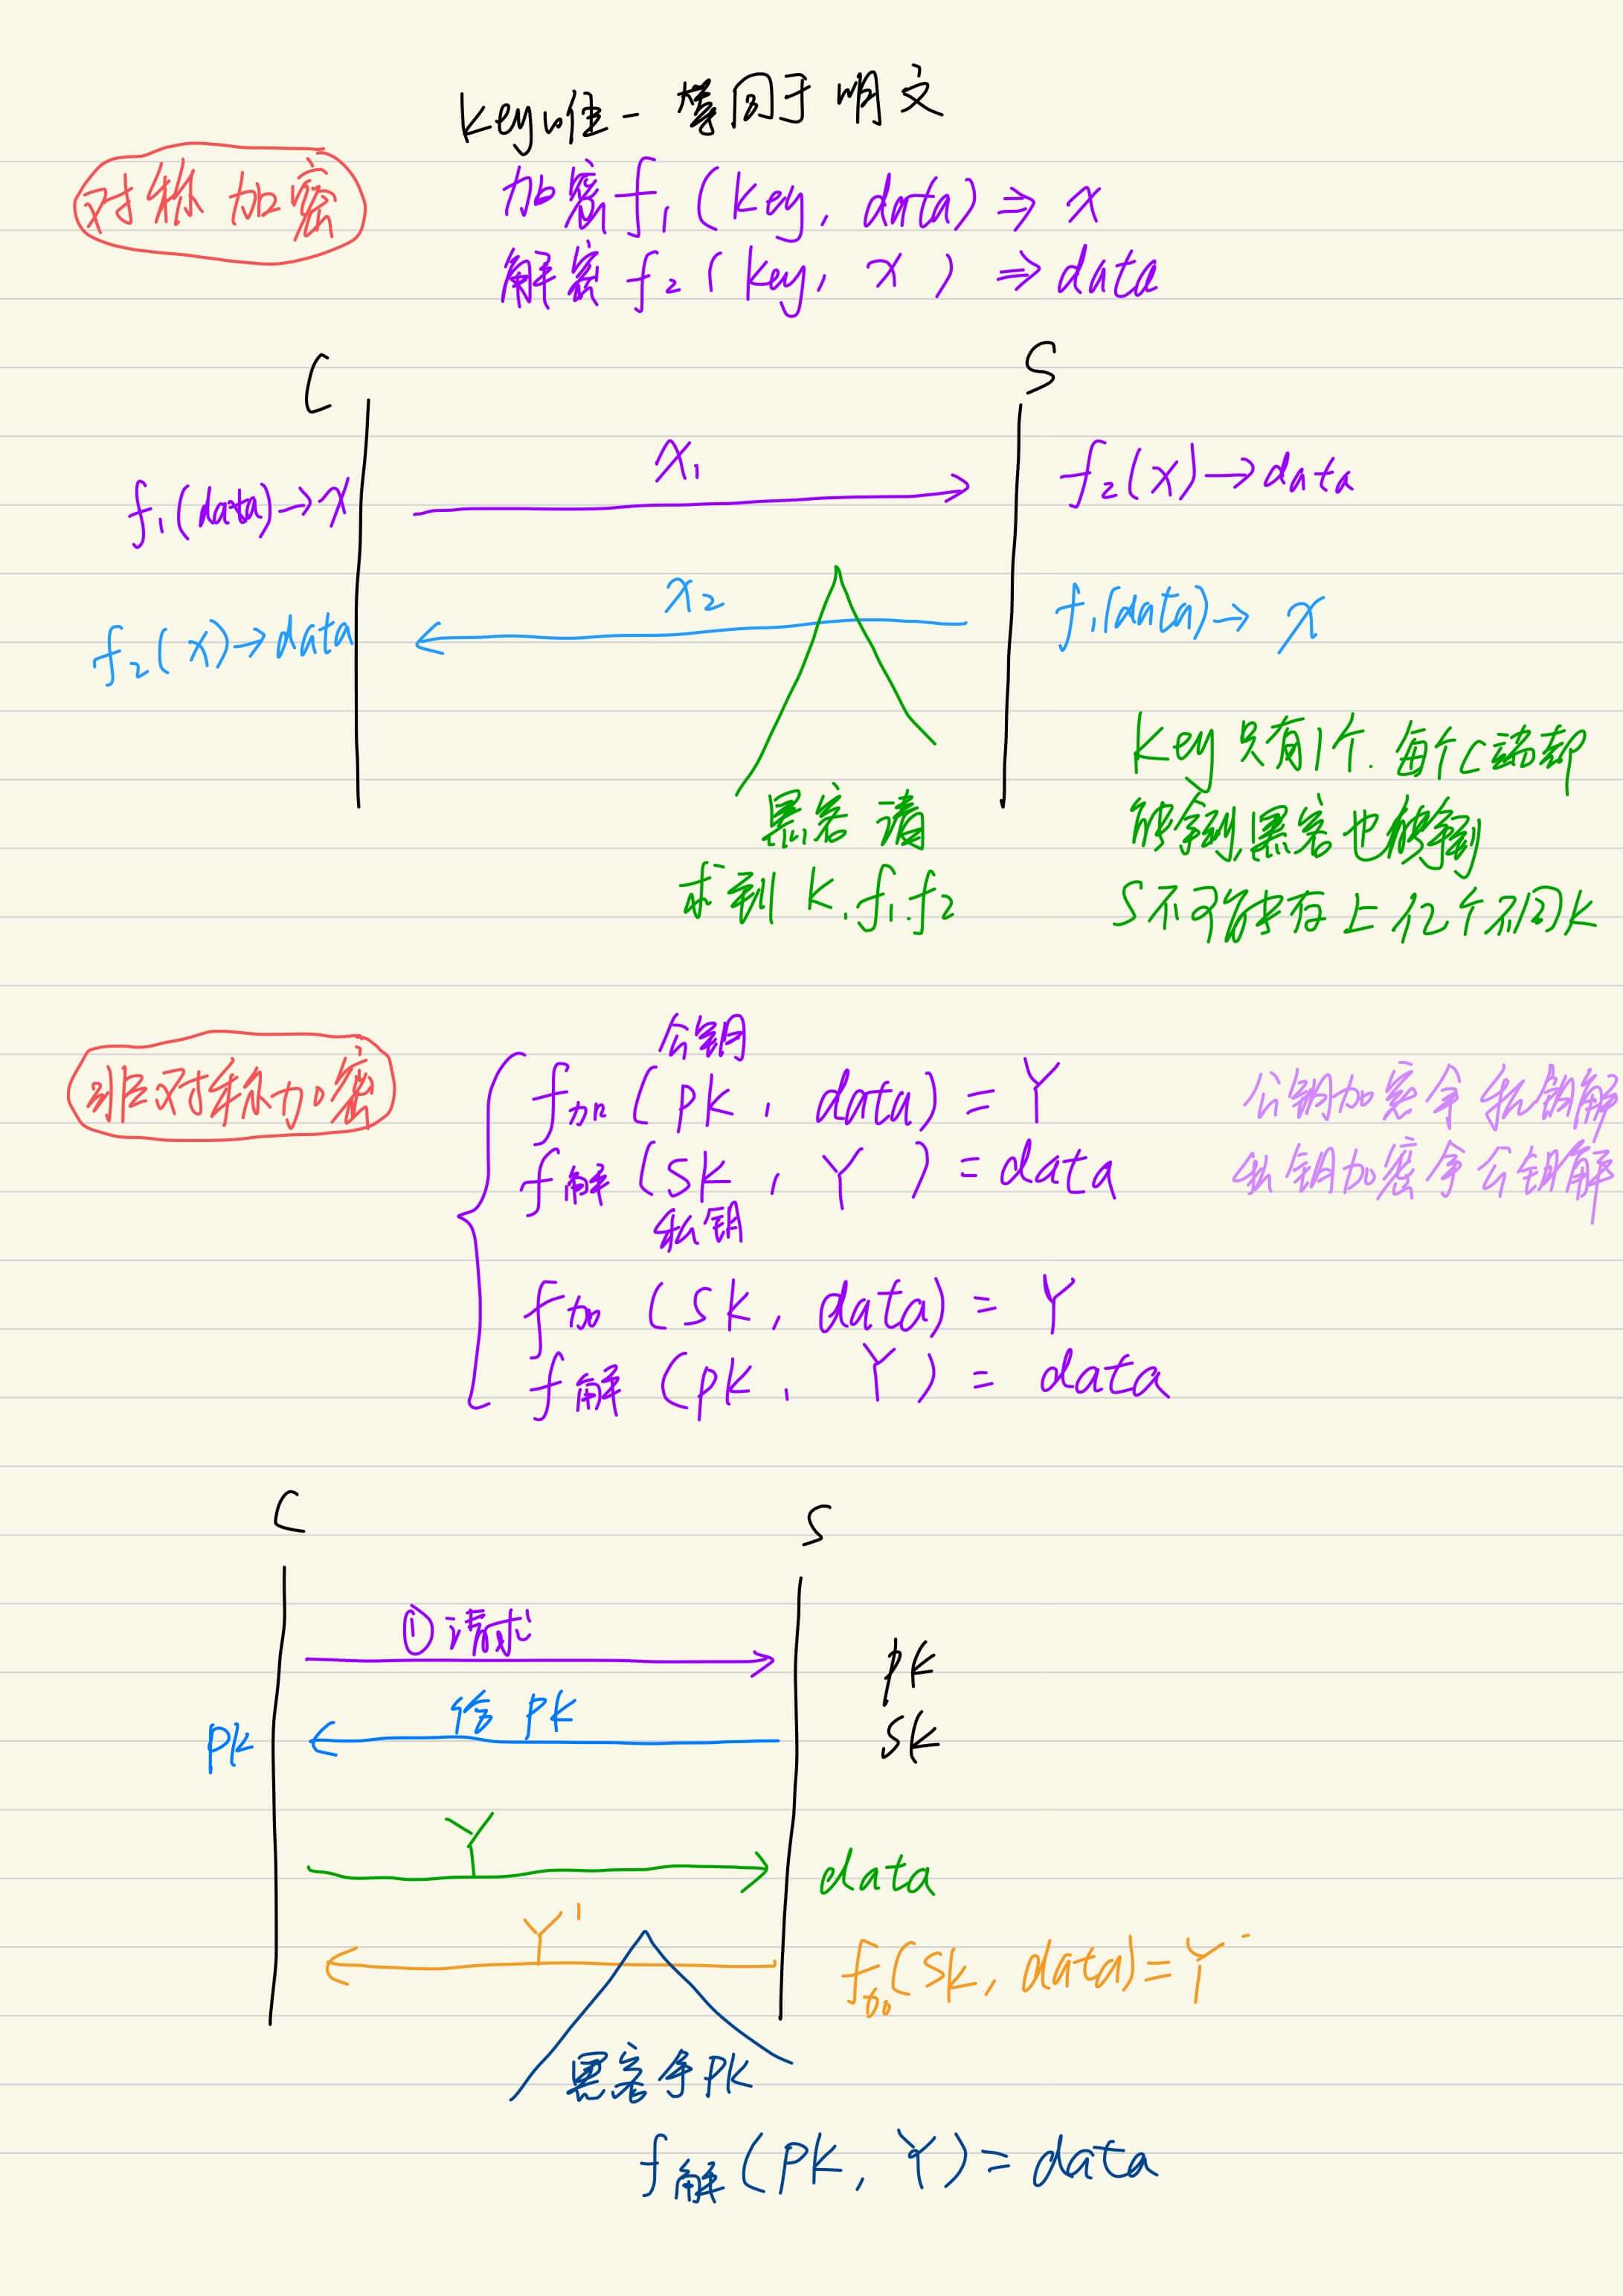 key唯一 等同于明文
对称加密
加密 f₁(key, data) ⇒ x
解密 f₂(key, x) ⇒ data
C
S
f₁(data)→x
x₁
f₂(x)→data
f₂(x)→data
x₂
f₁(data)→x
黑客请
求到 k.f₁.f₂
key 只有1个.每个C端都
能拿到,黑客也能拿到
S不可能存上亿个不同k
非对称加密
公钥
f加(pk, data)=Y
f解(sk, Y)=data
私钥
f加(sk, data)=Y
f解(pk, Y)=data
公钥加密拿私钥解
私钥加密拿公钥解
C
S
①请求
pk
给 pk
pk
sk
Y
data
Y'
f加(sk, data)=Y'
黑客拿pk
f解(pk, Y)=data